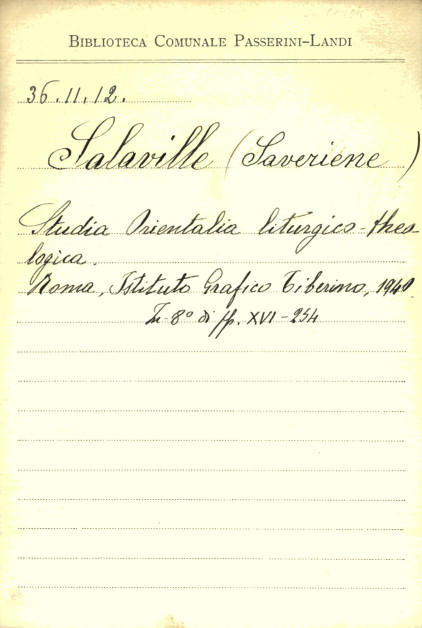 BIBLIOTECA COMUNALE PASSERINI-LANDI
36.11.12.
Salaville (Saveriene)
Studia Orientalia liturgico-theo
logica.
Roma, Istituto Grafico Tiberino, 1940.
In-8° di pp. XVI-254